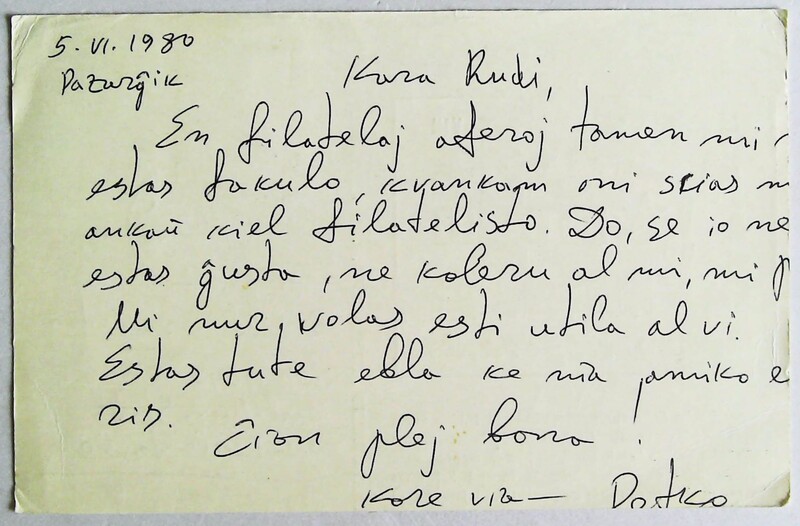 5. VI. 1980
Pazarĝik
Kara Rudi,
En filatelaj aferoj tamen mi
estas fakulo, kvankam oni scias m
ankaŭ kiel filatelisto. Do, se io ne
estas ĝusta, ne koleru al mi, mi p
Mi nur volas esti utila al vi.
Estas tute ebla ke nia amiko e
zis.
Ĉion plej bona!
Kore via —